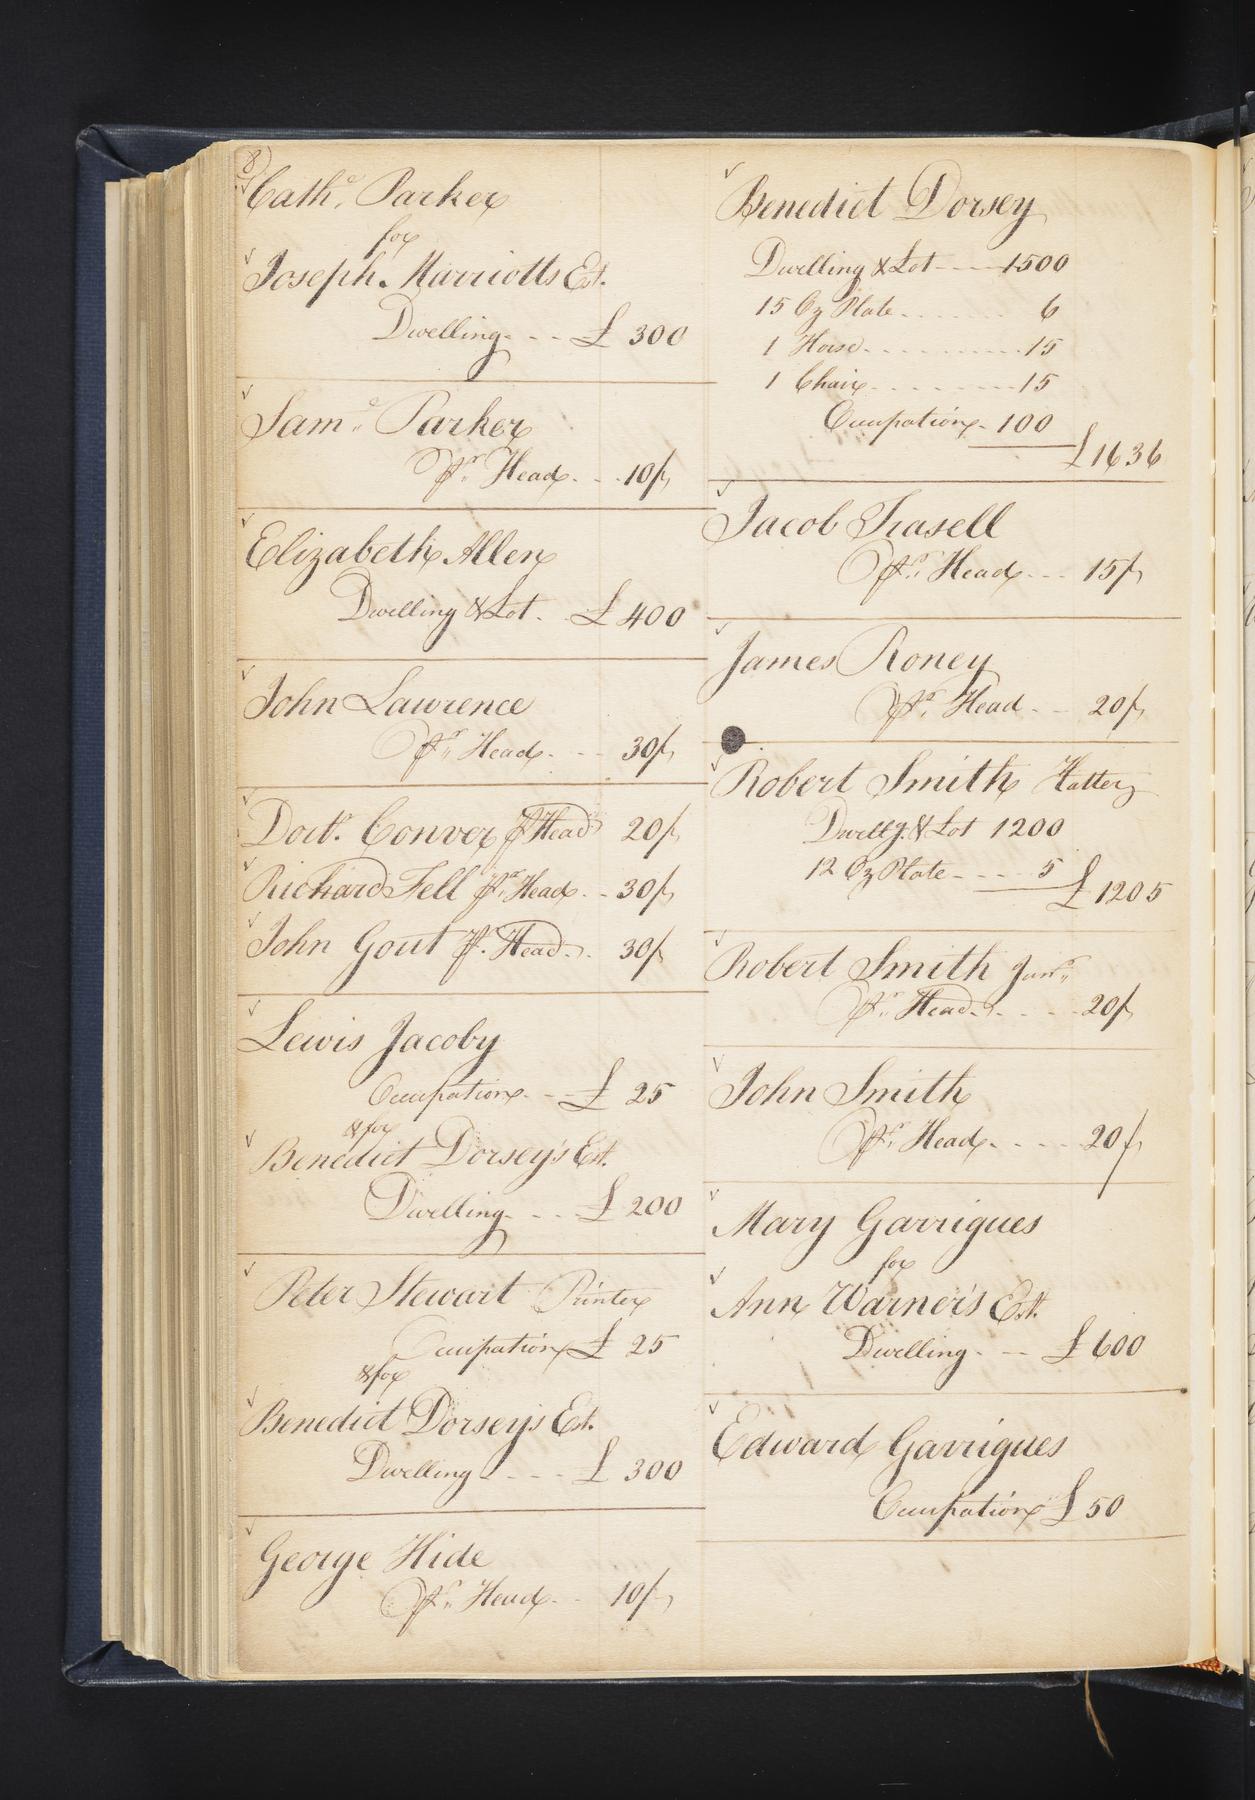 8
Cathe. Parker
for
Joseph Marriotts Est.
Dwelling - - - £ 300
Saml. Parker
Pr. Head - - 10/
Elizabeth Allen
Dwelling & Lot - - £ 400
John Lawrence
Pr. Head - - - 30/
Doctr. Conver Pr Head 20/
Richard Fell Pr. Head - - 30/
John Gout Pr. Head - - 30/
Lewis Jacoby
Occupation - - £ 25
& for
Benedict Dorsey's Est.
Dwelling - - - £ 200
Peter Stewart Printer
Occupation £ 25
& for
Benedict Dorsey's Est.
Dwelling - - - £ 300
George Hide
Pr. Head - - 10/
Benedict Dorsey
Dwelling & Lot - - - 1500
15 Oz Plate - - - - - 6
1 Horse - - - - - 15
1 Chair - - - - - 15
Occupation - 100
£1636
Jacob Trasell
Pr. Head - - - 15/
James Roney
Pr. Head - - 20/
Robert Smith Hatter
Dwellg. & Lot 1200
12 Oz Plate - - - - 5
£ 1205
Robert Smith Junr.
Pr. Head - - - - 20/
John Smith
Pr. Head - - - - 20/
Mary Garrigues
for
Ann Warner's Est.
Dwelling - - - £ 600
Edward Garrigues
Occupation £ 50